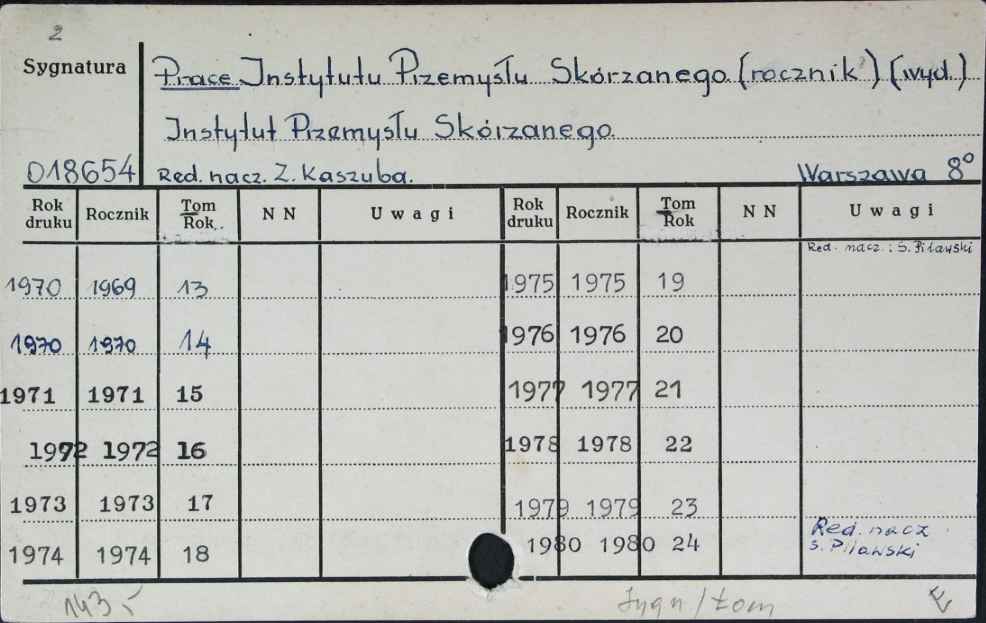 2
Sygnatura
Prace Instytutu Przemysłu Skórzanego (rocznik) (wyd.)
Instytut Przemysłu Skórzanego.
018654 Red. nacz. Z. Kaszuba. Warszawa 8°
Rok druku Rocznik Tom Rok NN Uwagi Rok druku Rocznik Tom Rok NN Uwagi
Red. nacz.: S. Pilawski
1970 1969 13 1975 1975 19
1970 1970 14 1976 1976 20
1971 1971 15 1977 1977 21
1972 1972 16 1978 1978 22
1973 1973 17 1979 1979 23
1974 1974 18 1980 1980 24 Red. nacz.
S. Pilawski
143,-
Sygn/tom
E